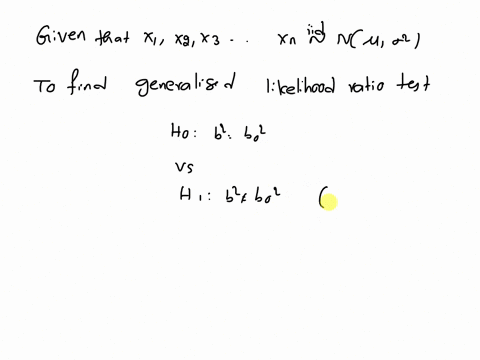 Given that x1, x2, x3 .. xn iid N(μ, σ²)
To find generalised likelihood ratio test
H0: b²: b0²
vs
H1: b²≠ b0² (